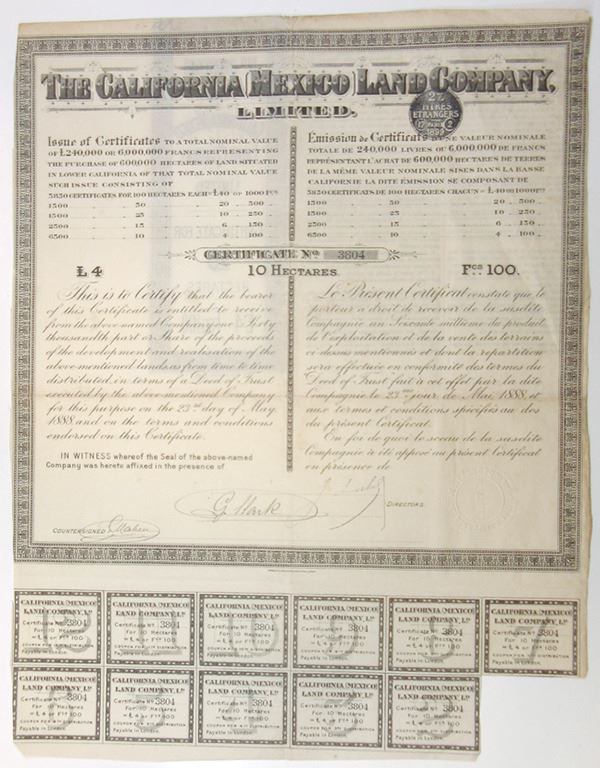 THE CALIFORNIA (MEXICO) LAND COMPANY,
LIMITED.
TITRES
ETRANGERS
Issue of Certificates TO A TOTAL NOMINAL VALUE
OF £240,000 OR 6,000,000 FRANCS REPRESENTING
THE PURCHASE OF 600,000 HECTARES OF LAND SITUATED
IN LOWER CALIFORNIA OF THAT TOTAL NOMINAL VALUE
SUCH ISSUE CONSISTING OF
CERTIFICATES FOR 100 HECTARES EACH = £40 OR 1000 FCS
1500 50 20 500
1500 25 10 250
2500 15 6 150
6500 10 4 100
Emission de Certificats D'UNE VALEUR NOMINALE
TOTALE DE 240,000 LIVRES OU 6,000,000 DE FRANCS
REPRÉSENTANT L'ACHAT DE 600,000 HECTARES DE TERRES
DE LA MÊME VALEUR NOMINALE SISES DANS LA BASSE
CALIFORNIE LA DITE ÉMISSION SE COMPOSANT DE
CERTIFICATS DE 100 HECTARES CHACUN = £40 OU 1000 FCS
1500 50 20 500
1500 25 10 250
2500 15 6 150
6500 10 4 100
CERTIFICATE No 3804
£4 10 HECTARES. Fcs 100.
This is to Certify that the bearer
of this Certificate is entitled to receive
from the above-named Company one Sixty
thousandth part or Share of the proceeds
of the development and realisation of the
above mentioned lands, as from time to time
distributed in terms of a Deed of Trust
executed by the above mentioned Company
for this purpose on the 23rd day of May
1888 and on the terms and conditions
endorsed on this Certificate.
Le Présent Certificat constate que le
porteur a droit de recevoir de la susdite
Compagnie un Soixante millième du produit
de l'exploitation et de la vente des terrains
ci-dessus mentionnés et dont la repartition
sera effectuée en conformité des termes du
Deed of Trust fait à cet effet par la dite
Compagnie le 23me jour de Mai 1888 et
aux termes et conditions spécifiés au dos
du présent Certificat.
En foi de quoi le sceau de la susdite
Compagnie à été apposé au présent Certificat
en présence de
IN WITNESS whereof the Seal of the above-named
Company was hereto affixed in the presence of
DIRECTORS.
COUNTERSIGNED
CALIFORNIA (MEXICO)
LAND COMPANY, LD
Certificate No. 3804
For 10 Hectares
= £4 or Fcs 100
Payable in London.
CALIFORNIA (MEXICO)
LAND COMPANY, LD
Certificate No. 3804
For 10 Hectares
= £4 or Fcs 100
Payable in London.
CALIFORNIA (MEXICO)
LAND COMPANY, LD
Certificate No. 3804
For 10 Hectares
= £4 or Fcs 100
Payable in London.
CALIFORNIA (MEXICO)
LAND COMPANY, LD
Certificate No. 3804
For 10 Hectares
= £4 or Fcs 100
Payable in London.
CALIFORNIA (MEXICO)
LAND COMPANY, LD
Certificate No. 3804
For 10 Hectares
= £4 or Fcs 100
Payable in London.
CALIFORNIA (MEXICO)
LAND COMPANY, LD
Certificate No. 3804
For 10 Hectares
= £4 or Fcs 100
Payable in London.
CALIFORNIA (MEXICO)
LAND COMPANY, LD
Certificate No. 3804
For 10 Hectares
= £4 or Fcs 100
Payable in London.
CALIFORNIA (MEXICO)
LAND COMPANY, LD
Certificate No. 3804
For 10 Hectares
= £4 or Fcs 100
Payable in London.
CALIFORNIA (MEXICO)
LAND COMPANY, LD
Certificate No. 3804
For 10 Hectares
= £4 or Fcs 100
Payable in London.
CALIFORNIA (MEXICO)
LAND COMPANY, LD
Certificate No. 3804
For 10 Hectares
= £4 or Fcs 100
Payable in London.
CALIFORNIA (MEXICO)
LAND COMPANY, LD
Certificate No. 3804
For 10 Hectares
= £4 or Fcs 100
Payable in London.